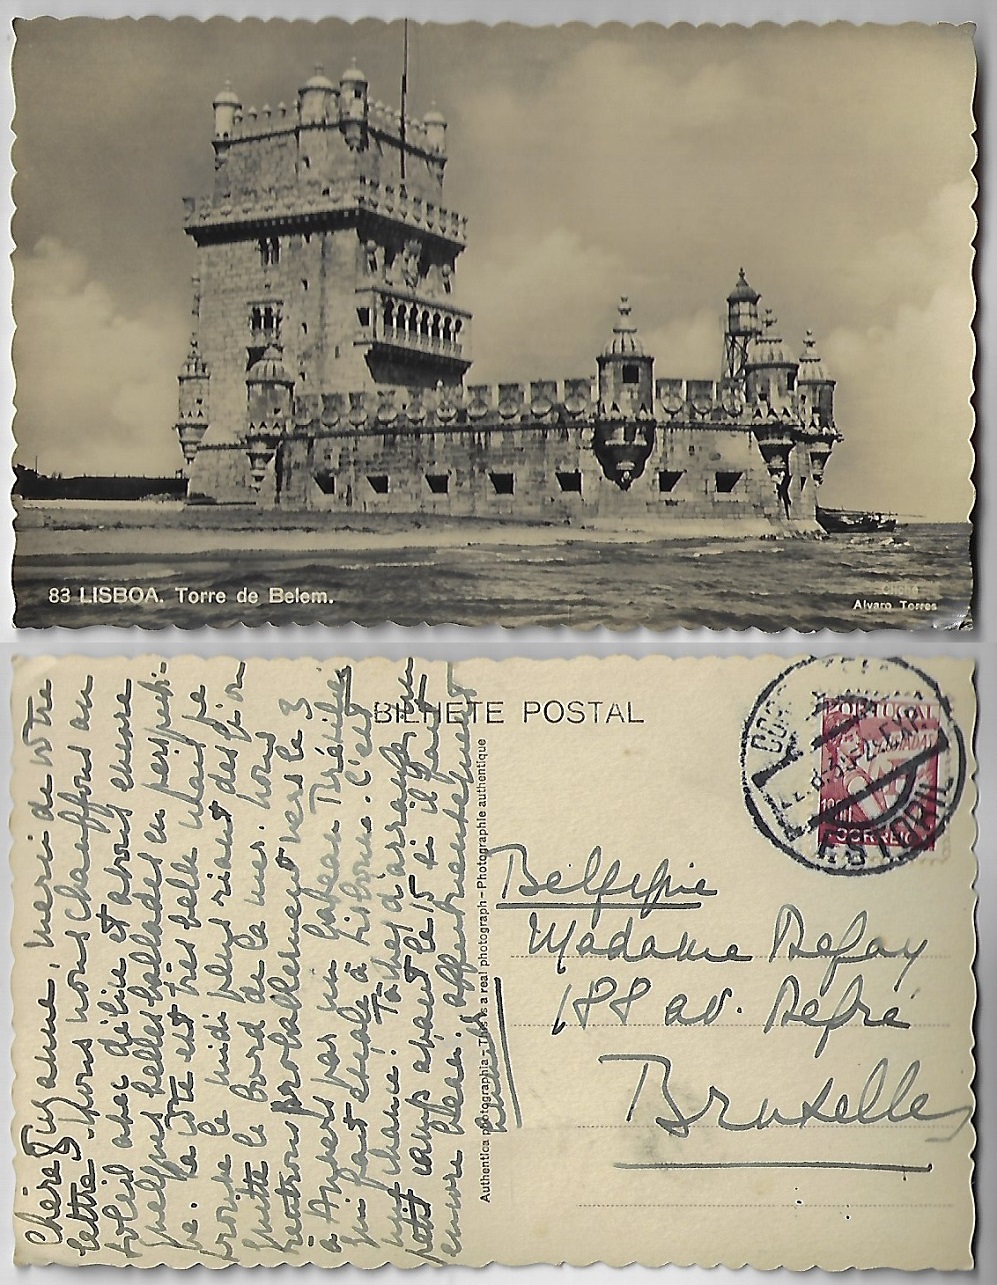 83 LISBOA. Torre de Belem.
Alvaro Torres
BILHETE POSTAL
PORTUGAL
LUSIADAS
CORREIO
ESTORIL
Authentica photographia - This is a real photograph - Photographie authentique
Chère Suzanne, merci de votre
lettre. Nous nous chauffons au
soleil avec délice et avons encore
quelques belles ballades en
la côte est très belle mais je
le midi plus riant dès qu'on
quitte le bord de la mer. Nous
rentrons probablement vers le 3
à Anvers par un bateau
qui fait escale à Lisbonne. C'est
une chance! Tâchez d'arranger un
petit camp avant le 15 si il fait
encore beau. Affectueusement
Belgique
Madame Defay
188 av. Defré
Bruxelles